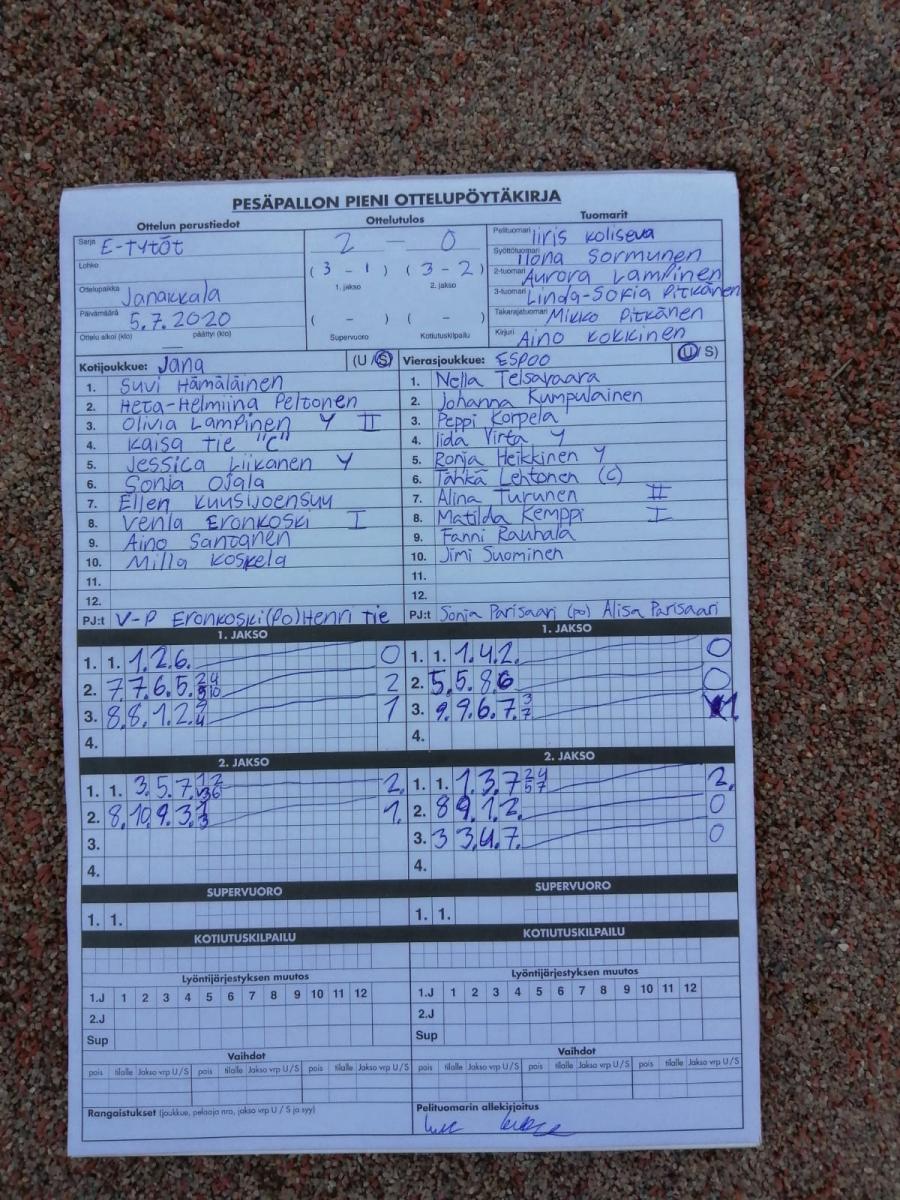 PESÄPALLON PIENI OTTELUPÖYTÄKIRJA
Ottelun perustiedot
Sarja E-Tytöt
Lohko
Ottelupaikka Janakkala
Päivämäärä 5.7.2020
Ottelu alkoi (klo) päättyi (klo)
Ottelutulos
2 - 0
(3 - 1) (3 - 2)
1. jakso 2. jakso
( - ) ( - )
Supervuoro Kotiutuskilpailu
Tuomarit
Pelituomari Iiris Koliseva
Syöttötuomari Ilona Sormunen
2-tuomari Aurora Lampinen
3-tuomari Linda-Sofia Pitkänen
Takarajatuomari Mikko Pitkänen
Kirjuri Aino Kokkinen
Kotijoukkue: Jana (U / S)
1. Suvi Hämäläinen
2. Heta-Helmiina Peltonen
3. Olivia Lampinen Y II
4. Kaisa Tie "C"
5. Jessica Liikanen Y
6. Sonja Ojala
7. Ellen Kuusijoensuu
8. Venla Eronkoski I
9. Aino Santanen
10. Milla Koskela
11.
12.
PJ:t V-P Eronkoski (PO) Henri Tie
Vierasjoukkue: ESPOO (U / S)
1. Nella Telsavaara
2. Johanna Kumpulainen
3. Peppi Korpela
4. Iida Virta Y
5. Ronja Heikkinen Y
6. Tähkä Lehtonen (C)
7. Alina Turunen II
8. Matilda Kemppi I
9. Fanni Rauhala
10. Jimi Suominen
11.
12.
PJ:t Sonja Parisaari (PO) Alisa Parisaari
1. JAKSO
1. 1. 1.2.6. 0
2. 7.7.6.5. 2
3. 8.8.1.2. 1
4.
1. JAKSO
1. 1. 1.4.2. 0
2. 5.5.8.6 0
3. 9.9.6.7. 1.
4.
2. JAKSO
1. 1. 3.5.7. 2.
2. 8.10.9.3. 1.
3.
4.
2. JAKSO
1. 1. 1.3.7 2.
2. 8 9.1.2. 0
3. 3 3.4.7. 0
4.
SUPERVUORO
1. 1.
SUPERVUORO
1. 1.
KOTIUTUSKILPAILU
KOTIUTUSKILPAILU
Lyöntijärjestyksen muutos
1.J 1 2 3 4 5 6 7 8 9 10 11 12
2.J
Sup
Lyöntijärjestyksen muutos
1.J 1 2 3 4 5 6 7 8 9 10 11 12
2.J
Sup
Vaihdot
pois tilalle Jakso vrp U / S pois tilalle Jakso vrp U / S pois tilalle Jakso vrp U / S
Vaihdot
pois tilalle Jakso vrp U / S pois tilalle Jakso vrp U / S pois tilalle Jakso vrp U / S
Rangaistukset (joukkue, pelaaja nro, jakso vrp U / S ja syy)
Pelituomarin allekirjoitus